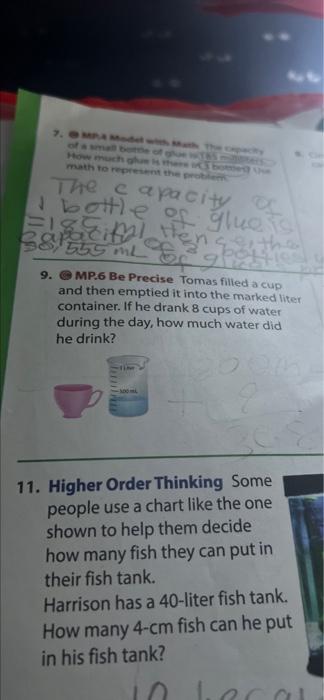 7. MP.4 Model with Math The capacity
of a small bottle of glue is 185 milliliters.
How much glue is there in 3 bottles? Use
math to represent the problem.
The capacity of
1 bottle of glue is
=185 ml Hence, the
capacity of 3 bottles
555 mL of
9. MP.6 Be Precise Tomas filled a cup
and then emptied it into the marked liter
container. If he drank 8 cups of water
during the day, how much water did
he drink?
1 Liter
500 mL
11. Higher Order Thinking Some
people use a chart like the one
shown to help them decide
how many fish they can put in
their fish tank.
Harrison has a 40-liter fish tank.
How many 4-cm fish can he put
in his fish tank?